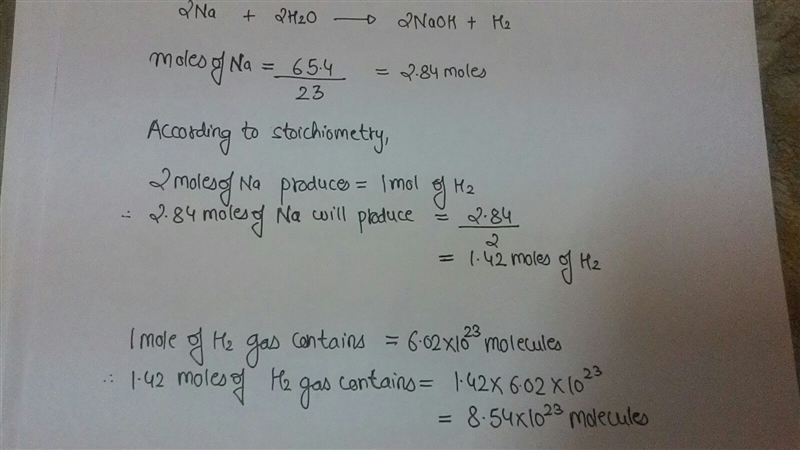 2Na + 2H2O → 2NaOH + H2
moles of Na = 65.4 / 23 = 2.84 moles
According to stoichiometry,
2 moles of Na produces = 1 mol of H2
∴ 2.84 moles of Na will produce = 2.84 / 2
= 1.42 moles of H2
1 mole of H2 gas contains = 6.02×10²³ molecules
∴ 1.42 moles of H2 gas contains = 1.42 × 6.02 × 10²³
= 8.54×10²³ molecules